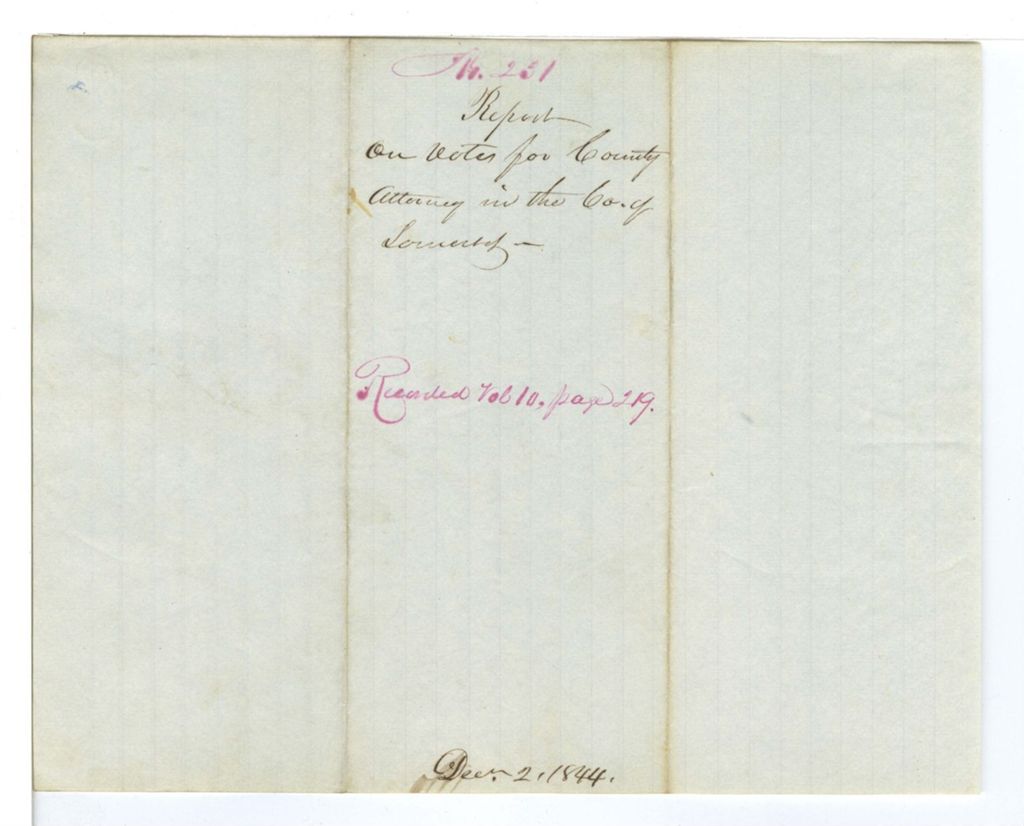 No. 231
Report
On Votes for County
Attorney in the Co. of
Somerset –
Recorded Vol 10, page 219.
Decr. 2, 1844.